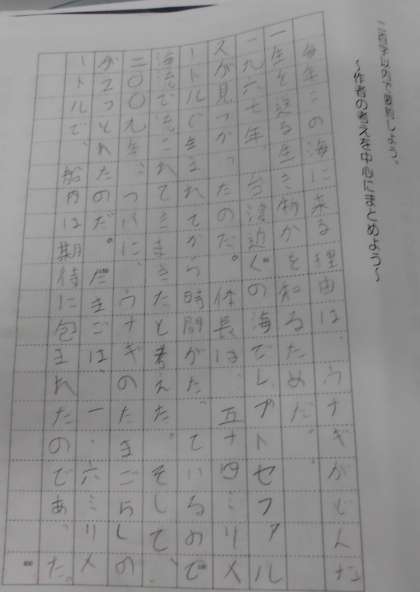 〜作者の考えを中心にまとめよう〜
毎年この海に来る理由は、ウナギがどんな
一生を送る生き物かを知るためだ。
一九六七年、台湾近くの海でレプトセファル
スが見つかったのだ。体長は、五十四ミリメ
ートルで生まれてから時間がたっているので
海流で流されてきたと考えた。そして、
二〇〇九年、ついに、ウナギのたまごらしの
が2つとれたのだ。たまごは、一・六ミリメ
ートルで、船内は期待に包まれたのであった。